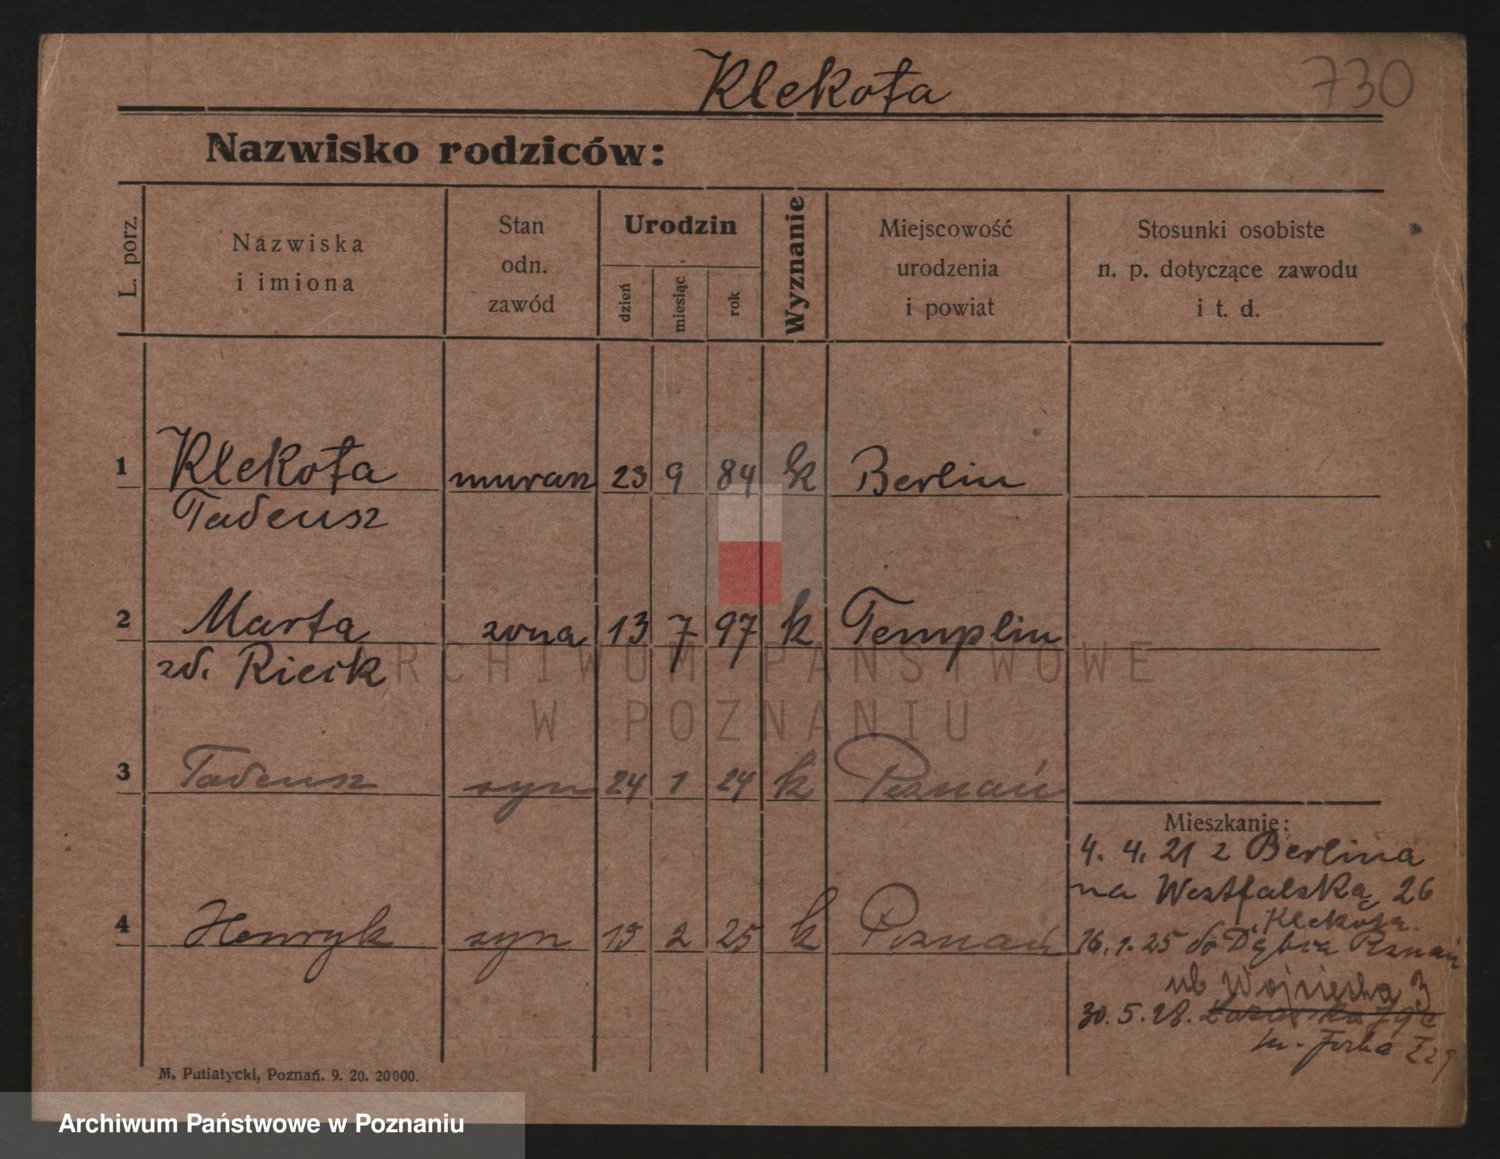 Klekota
730
Nazwisko rodziców:
L. porz.
Nazwiska
i imiona
Stan
odn.
zawód
Urodzin
dzień
miesiąc
rok
Wyznanie
Miejscowość
urodzenia
i powiat
Stosunki osobiste
n. p. dotyczące zawodu
i t. d.
1 Klekota murarz 23 9 84 k Berlin
Tadeusz
2 Marta żona 13 7 97 k Templin
zd. Rieck
3 Tadeusz syn 24 1 24 k Poznań
4 Henryk syn 15 2 25 k Poznań
Mieszkanie:
4. 4. 21 z Berlina
na Westfalską 26
Klekota
16. 1. 25 do Poznań
Wojciecha 3
30. 5. 28.
M. Putiatycki, Poznań. 9. 20. 20000.
ARCHIWUM PAŃSTWOWE
W POZNANIU
Archiwum Państwowe w Poznaniu